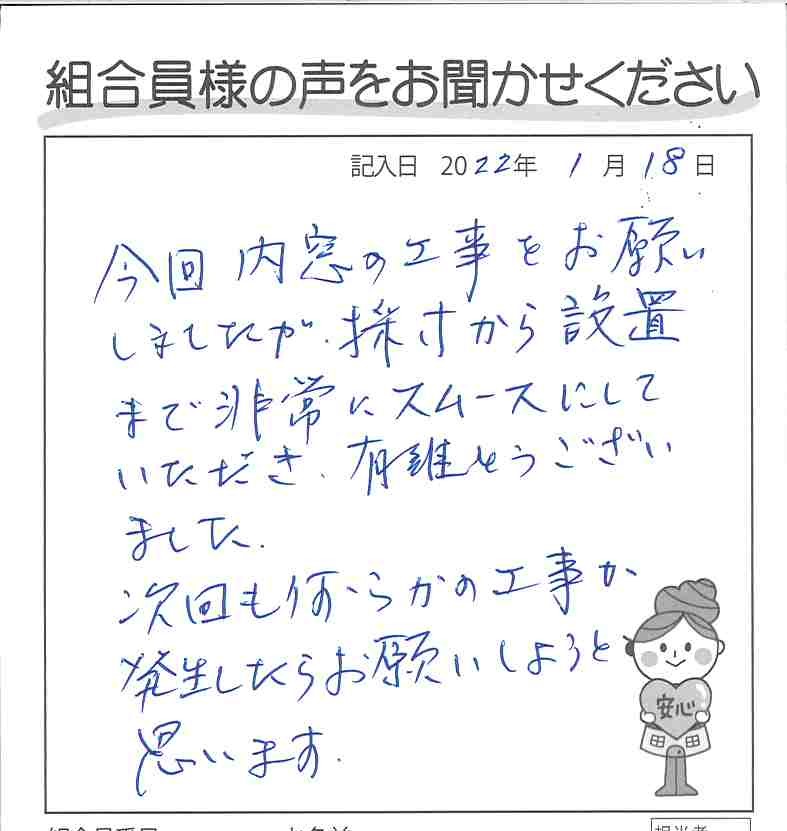 組合員様の声をお聞かせください
記入日 2022年 1月 18日
今回 内窓の工事をお願い
しましたが、採寸から設置
まで非常にスムースにして
いただき、有難とうござい
ました.
次回も何らかの工事が
発生したらお願いしようと
思います.
安心